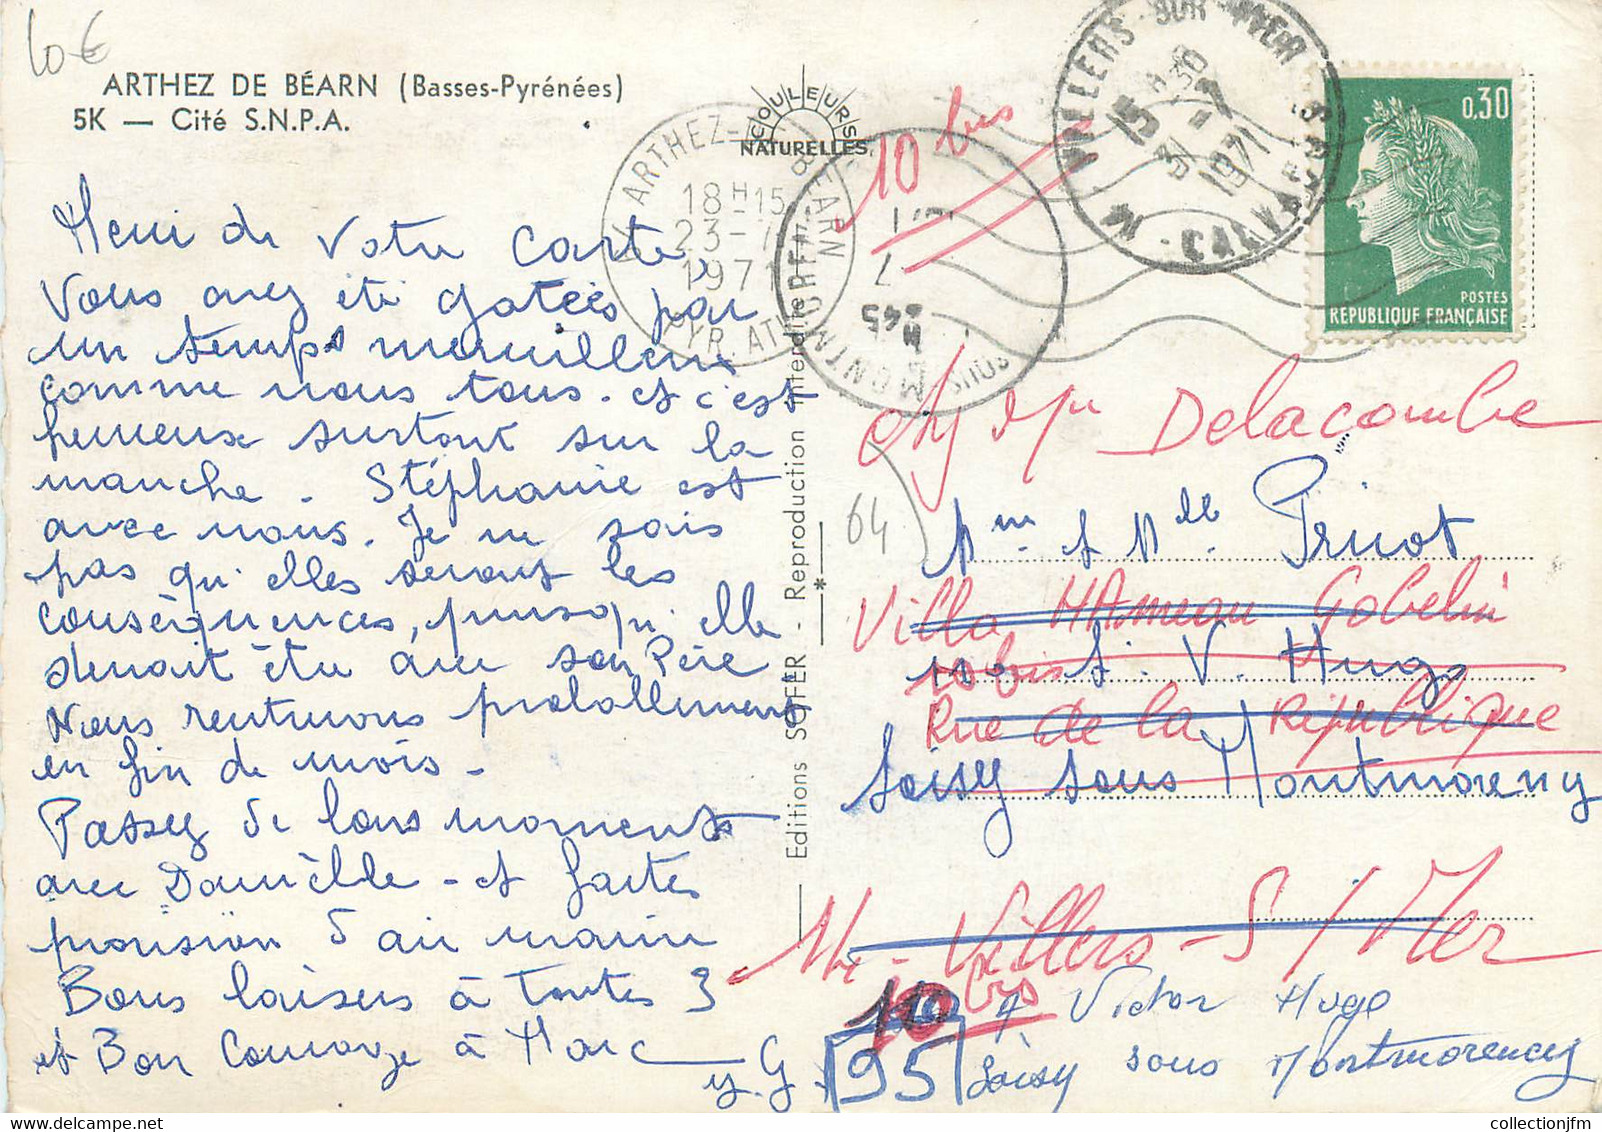 10€
ARTHEZ DE BÉARN (Basses-Pyrénées)
5K — Cité S.N.P.A.
COULEURS
NATURELLES
64 ARTHEZ-DE-BÉARN
18H15
23-7
1971
PYR. ATL.
MONTMORENCY
SOUS
H
245
7
14 VILLERS-SUR-MER
15H30
31-7
1971
CALVADOS
0,30
POSTES
RÉPUBLIQUE FRANÇAISE
10 bis
Merci de votre carte,
Vous avez été gatées par
un temps merveilleux
comme nous tous. et c'est
heureux surtout sur la
manche. Stéphanie est
avec nous. Je ne sais
pas qu'elles seront les
conséquences, puisqu'elle
devait être avec son Père
Nous rentrerons probablement
en fin de mois.
Passez de bons moments
avec Danièlle - et faites
provision d'air marin
Bons baisers à toutes 3
et Bon Courage à Marc
y.G.
Editions SOFER - Reproduction interdite
64
Chez Mr Delacombe
Mme et Melle Pricot
Villa Hameau Gobelin
10 bis A. V. Hugo
Rue de la République
Soisy sous Montmoreny
14 - Villers - S / Mer
10 bis A Victor Hugo
95 Soisy sous Montmorencey
collectionjfm